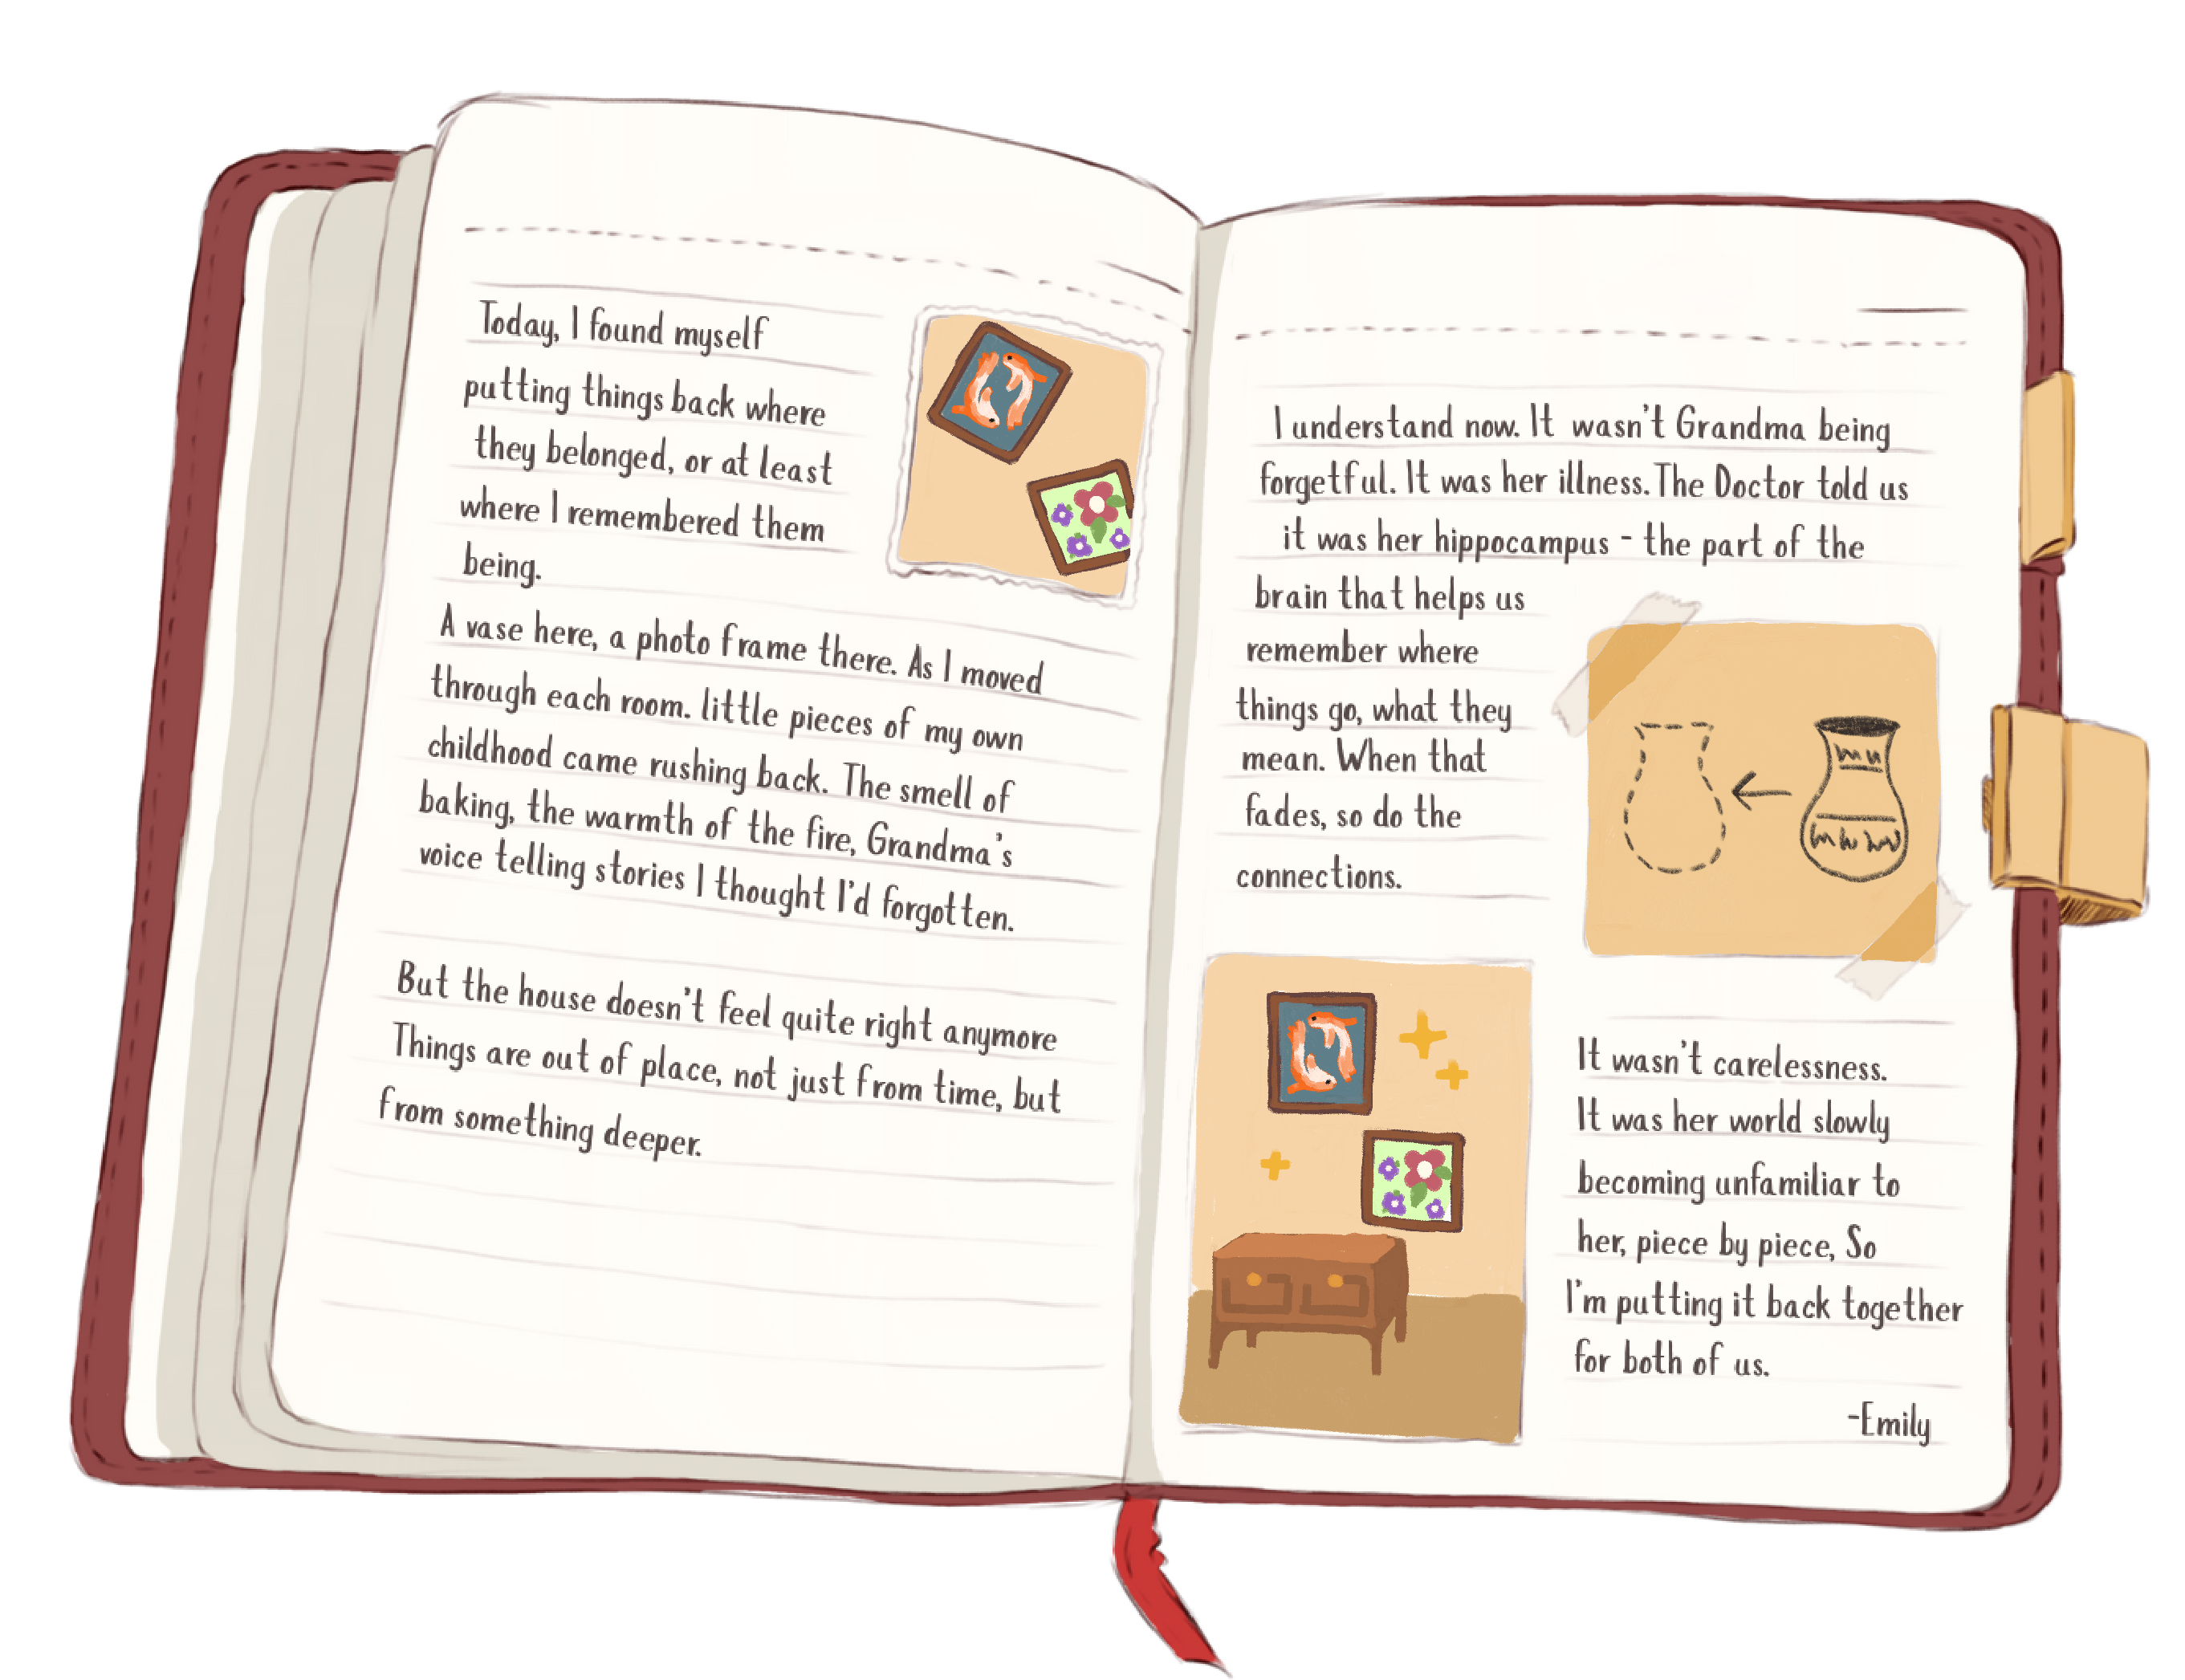 Today, I found myself
putting things back where
they belonged, or at least
where I remembered them
being.
A vase here, a photo frame there. As I moved
through each room. little pieces of my own
childhood came rushing back. The smell of
baking, the warmth of the fire, Grandma's
voice telling stories I thought I'd forgotten.
But the house doesn't feel quite right anymore
Things are out of place, not just from time, but
from something deeper.
I understand now. It wasn't Grandma being
forgetful. It was her illness. The Doctor told us
it was her hippocampus - the part of the
brain that helps us
remember where
things go, what they
mean. When that
fades, so do the
connections.
It wasn't carelessness.
It was her world slowly
becoming unfamiliar to
her, piece by piece, So
I'm putting it back together
for both of us.
-Emily